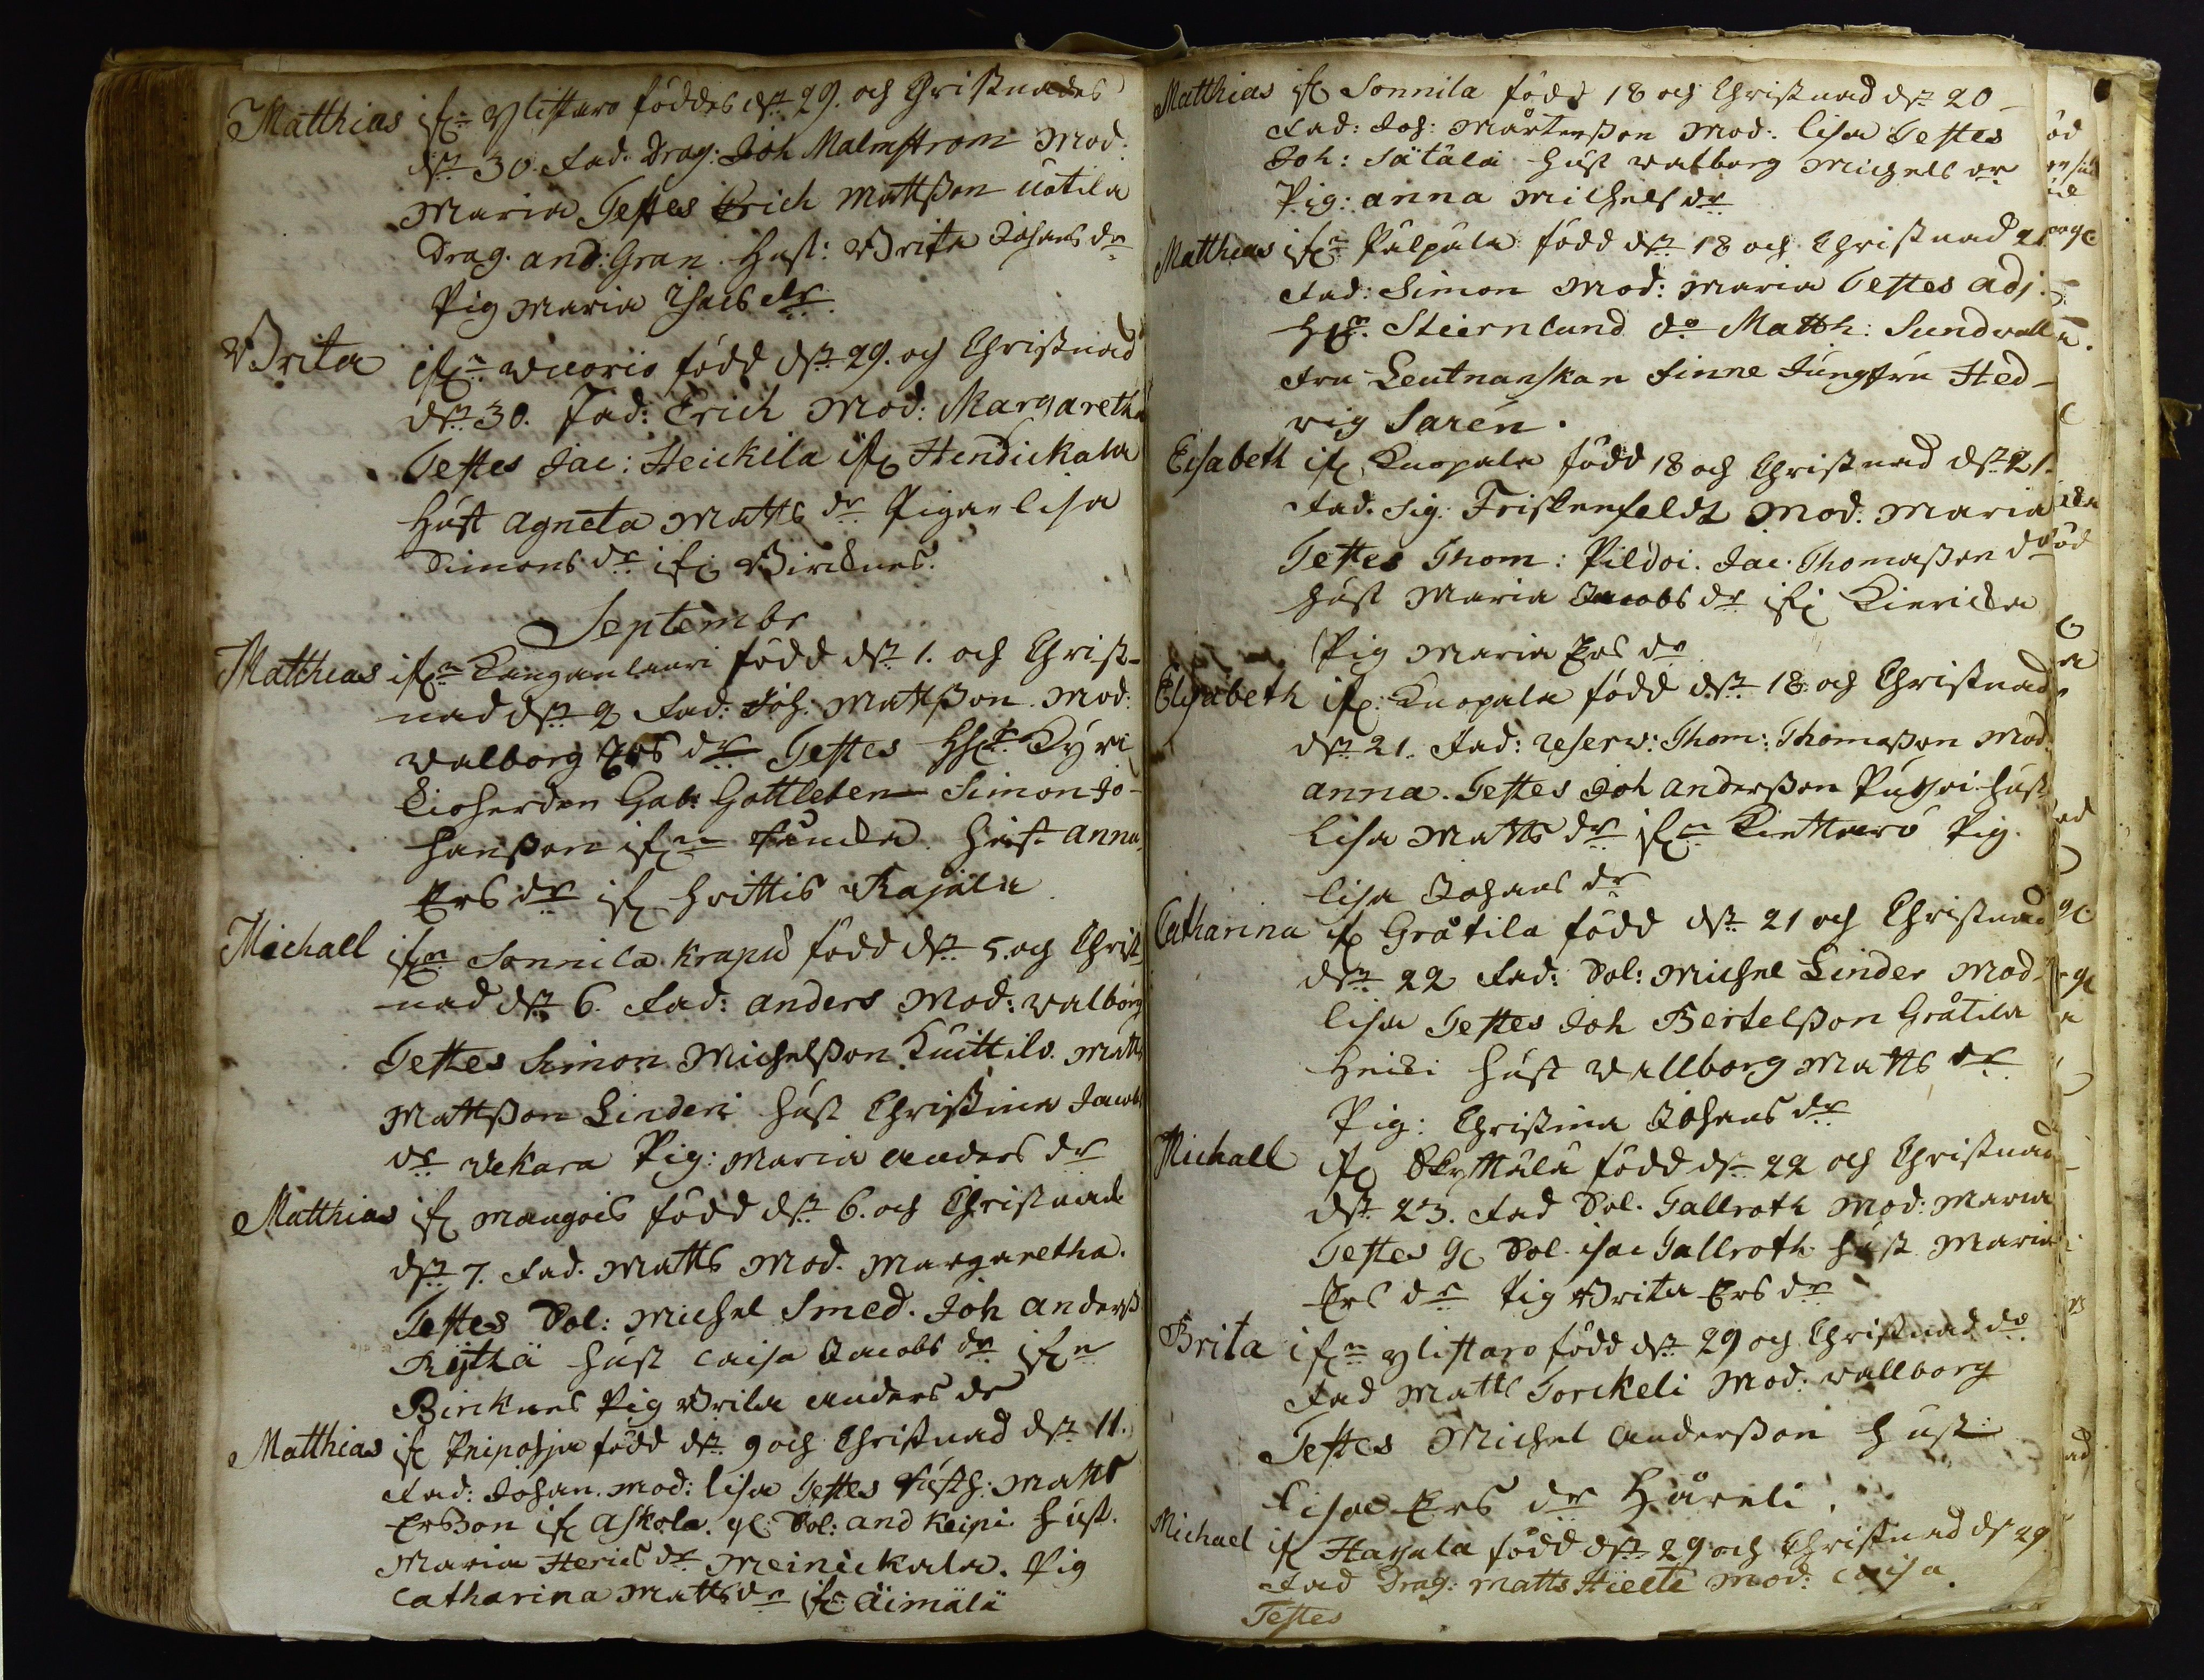 Matthias ifrn Ylistaro föddes dn 29. och Christnades
dn 30. Fad. Drag: Joh Malmstrom Mod:
Maria Testes Erich Mattsson Uotila
Drag. and: Gran. Hust: Brita Johans dr
Pig Maria Isacs dr
Brita ifrn Wuorio född dn 29. och Christnad
dn 30. Fad: Erich Mod: Margaretha
Testes Jac: Heickila ifr Hendickala
Hust Agneta Matts dr Pigan Lisa
Simons dr ifr Bircknes.
Septembr
Matthias ifrn Kanganlauri född dn 1. och Christ-
nad dn 2 Fad: Joh: Mattsson. Mod:
Walborg Ers dr Testes Kyri
Gab: Gottleben Simon Jo-
hansson ifrn Hust Anna
Ers dr ifr Hvittis Rajala
Michall ifrn Sonnila Krapu född dn 5. och Christ
nad dn 6. Fad: Anders Mod: Walborg
Testes Simon Michelsson Kuittilo. Matts
Mattsson Linderi Hust Christina Jacobs
dr Wekara Pig: Maria Anders dr
Matthias ifr Maugois född dn 6. och Christnade
dn 7. Fad. Matts Mod. Margaretha.
Testes Sol: Michel Smed. Joh Anderss
Rythä Hust Caisa Jacobs dr ifrn
Bircknes Pig Brita Anders dr
Matthias ifr Pripohja född dn 9 och Christnad dn 11.
Fad: Johan. Mod: Lisa Testes Matts
Ersson ifr Askola. gl: Sol: And Keipi Hust.
Maria Henrics dr Meinickala. Pig
Catharina Matts dr ifr Äimälä
Matthias ifr Sonnila född 18 och Christnad dn 20
Fad: Joh: Mårtensson Mod: Lisa Testes
Joh: Sätälä Hust Walborg Michels dr
Pig: Anna Michels dr
Matthias ifrn Pälpälä född dn 18 och Christnad 21
Fad: Simon Mod: Maria Testes Adj:
Hrr. Stiernlund do Matth: Sundwall
Fru Leutnanskan Finne Jungfru Hed-
wig Saren.
Elsabeth ifr Knopala född 18 och Christnad dn 21.
Fad. Sig: Friskenfeldt Mod. Maria
Testes Thom: Pildoi. Jac. Thomasson
Hust Maria Jacobs dr ifr
Pig Maria Ers dr
Elisabeth ifr: Knopala född dn 18 och Christnad
dn 21. Fad: Reserv: Thom: Thomasson Mod.
Anna. Testes Joh Andersson Putzri Hust
Lisa Matts dr ifrn Pig.
Lisa Johans dr
Catharina ifr Gråtila född dn 21 och Christnad
dn 22 Fad: Sol: Michel Linder Mod:
Lisa Testes Joh Bertelsson Gråtila
Heiki Hust Wallborg Matts dr
Pig: Christina Johans dr
Michall ifr Skyttälä född dn 22 och Christnad
dn 23. Fad Sol. Tallroth Mod: Maria
Testes gl Sol. Isac Tallroth Hust Maria
Ers dr Pig Brita Ers dr
Brita ifrn Ylistaro född dn 29 och Christnad do
Fad Matts Torckeli Mod: Wallborg
Testes Michel Andersson Hust
Lisa Ers dr Håreli.
Michael ifr Haijala född dn 29 och Christnad dn 29
Fad Drag: Matts Hielte Mod: Caisa.
Testes